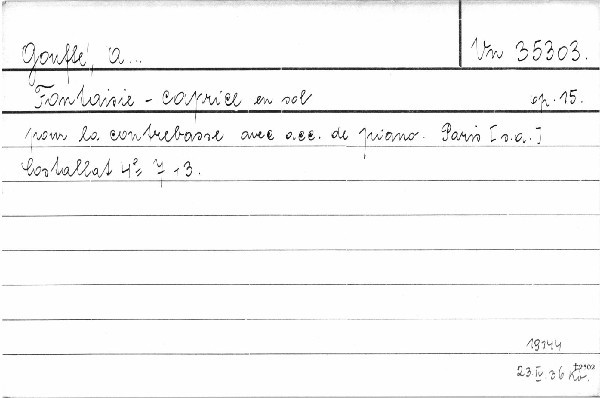 Gouffé, A...
Vn 35303.
Fantaisie - caprice en sol op. 15.
pour la contrebasse avec acc. de piano. Paris [s.a.]
Costallat 4º = 7 + 3.
19744
23. IV 36